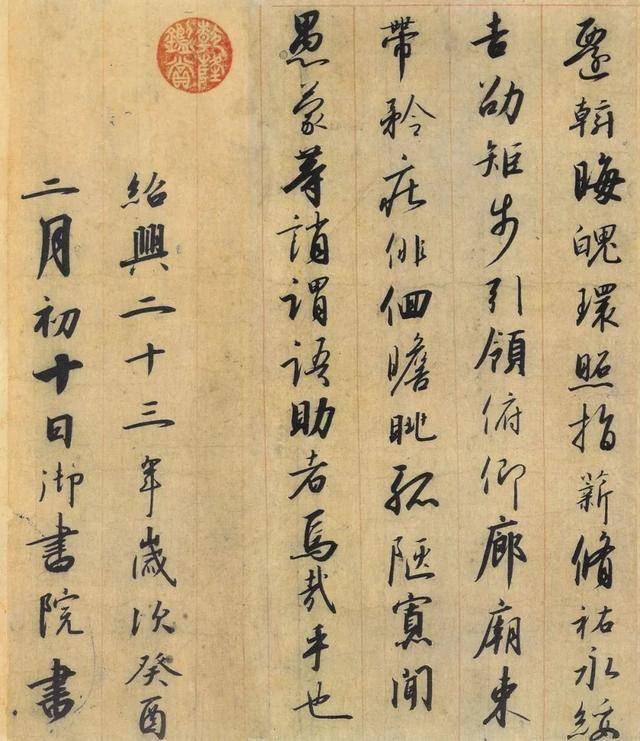 遷斡晦魄環照指薪脩祜永綏
吉劭矩步引領俯仰廊廟束
帶矜莊俳佪瞻眺孤陋寡聞
愚蒙等誚謂語助者焉哉乎也
紹興二十三年歲次癸酉
二月初十日御書院書
乾隆鑑賞